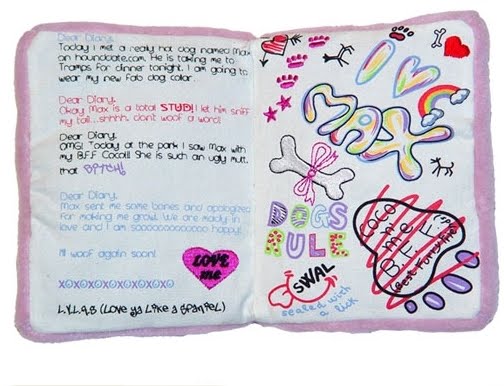 Dear Diary,
Today I met a really hot dog named Max
on hounddate.com. He is taking me to
Tramps for dinner tonight. I am going to
wear my new Fab dog color...
Dear Diary,
Okay Max is a total STUD! I let him sniff
my tail...shhhh, dont woof a word!
Dear Diary,
OMG! Today at the park I saw Max with
my B.F.F Coco!! She is such an ugly mutt,
that B*TCH!
Dear Diary,
Max sent me some bones and apologized
for making me growl. We are madly in
love and I am soooooooooooooo happy!
I'll woof again soon!
XOXOXOXOXOXOXOXO
L.Y.L.A.S (Love ya Like a Spaniel)
LOVE
me
I
MAX
DOGS
RULE
SWAL
sealed with
a lick
COCO
n me
B.F.F.
(Best Furry Friend)